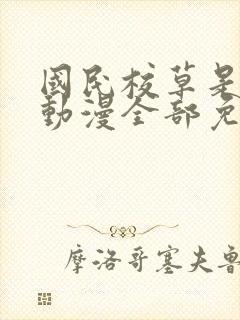 國民校草是
動漫全部免
摩洛哥塞夫魯